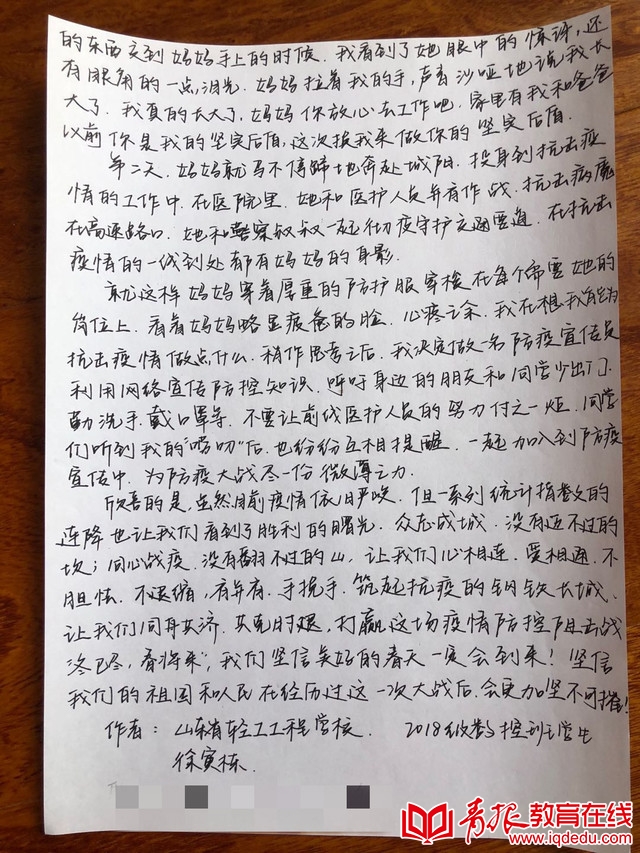 的东西交到妈妈手上的时候，我看到了她眼中的惊讶，还
有眼角的一点泪光．妈妈拉着我的手，声音沙哑地说我长
大了．我真的长大了，妈妈你放心去工作吧．家里有我和爸爸
以前你是我的坚实后盾，这次换我来做你的坚实后盾．
第二天．妈妈就马不停蹄地奔赴城阳．投身到抗击疫
情的工作中．在医院里．她和医护人员并肩作战．抗击病魔
在高速路口．她和警察叔叔一起彻夜守护交通要道．在抗击
疫情的一线到处都有妈妈的身影．
就这样妈妈穿着厚重的防护服穿梭在每个需要她的
岗位上．看着妈妈略显疲惫的脸．心疼之余．我在想我能为
抗击疫情做点什么．稍作思考之后．我决定做一名防疫宣传员
利用网络宣传防控知识．呼吁身边的朋友和同学少出门．
勤洗手．戴口罩等．不要让前线医护人员的努力付之一炬．同学
们听到我的"唠叨"后．也纷纷互相提醒．一起加入到防疫
宣传中．为防疫大战尽一份微薄之力．
欣喜的是，虽然目前疫情依旧严峻．但一系列统计指数的
连降也让我们看到了胜利的曙光．众志成城．没有迈不过的
坎；同心战疫．没有翻不过的山，让我们心相连．爱相通．不
胆怯．不退缩，肩并肩．手挽手．筑起抗疫的钢铁长城．
让我们同舟共济．共克时艰，打赢这场疫情防控阻击战
冬已尽，看将来"，我们坚信美好的春天一定会到来！坚信
我们的祖国和人民在经历过这一次大战后．会更加坚不可摧！
作者：山东省轻工工程学校． 2018级数控班学生
徐寅栋．
青报教育在线
www.iqdedu.com